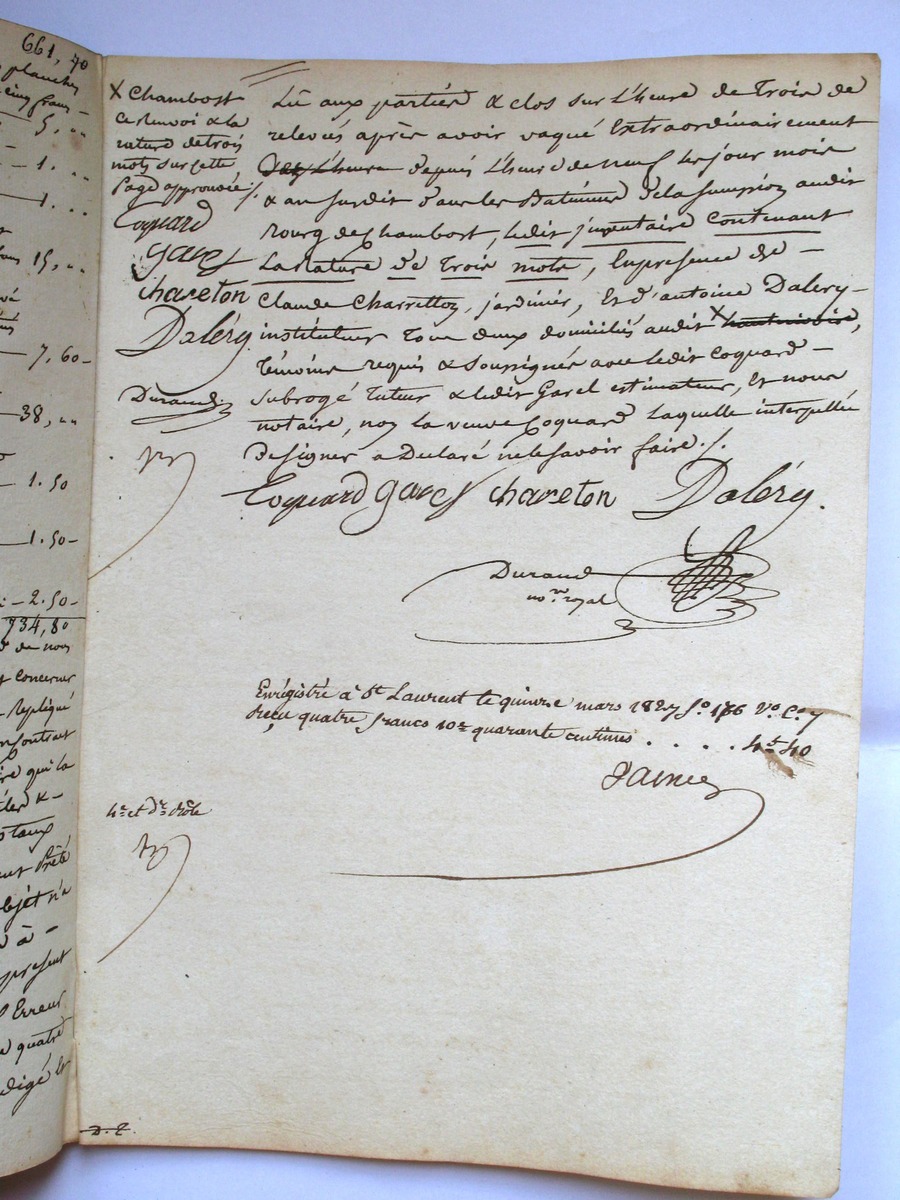 661, 70
planches
cinq francs
5, ..
1. ..
1. ..
15, ..
7, 60
38, ..
1. 50
1. 50
2. 50
734, 80
de nous
concerner
repliqué
qu'il a
Prêté
objet n'a
à
present
Erreur
quatre
rédigé et
X Chambost
ce renvoi & la
rature de trois
mots sur cette
page approuvée ./.
Coquard
garel
chareton
Daléry
Durand
Lû aux parties & clos sur L'heure de Trois de
relevée après avoir vaqué Extraordinairement
depuis L'heure de neuf les jour mois
& an susdit dans les Batimens de la succession audit
Bourg de Chambost, ledit jnventaire Contenant
La Rature de Trois mots, En presence de
Claude Charretton, jardinier, Et d'antoine Dalery
instituteur Tous deux domiciliés audit X
Témoins requis & soussignés avec ledit Coquard
subrogé Tuteur & ledit Garel estimateur, Et nous
notaire, non la veuve Coquard Laquelle interpellée
de signer a Declaré ne le savoir faire ./.
Coquard garel chareton Daléry.
Durand
no.re royal
Enrégistré à St Laurent le quinze mars 1827 fo 176 Vo C.e 7
Reçu quatre francs 10e quarante centimes . . . . 4f 40
4e et d.er rôle
D. T.